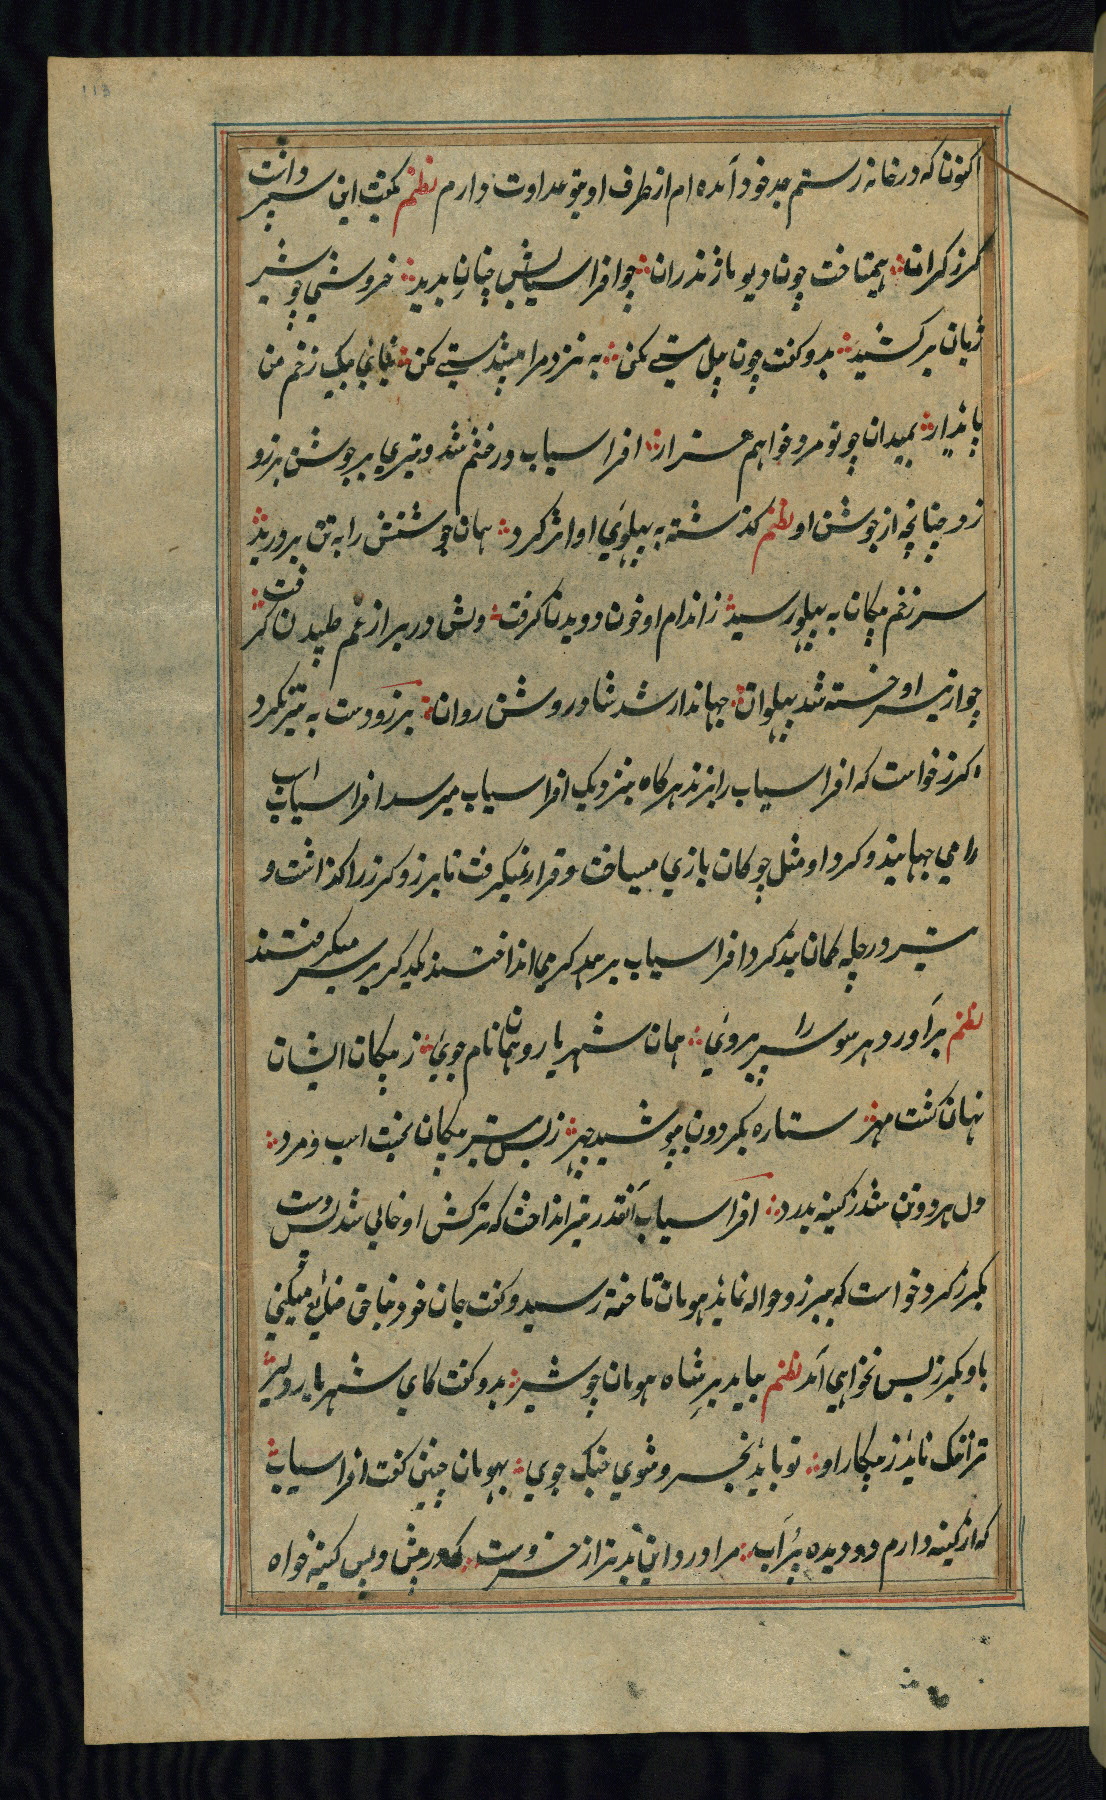 113
اکنون که در خانه رستم جد خود آمده ام از طرف او بتو عداوت دارم نظم بگفت این و سپر داشت
گرز گران هیتاخت چون دیو مازندران چو افراسیابش چنان بدید خروشی چو شیر
ژیان بر کشید بدو گفت چون پیل مستی مکن به نزد مرا پیشدستی مکن نیابی بیک زخم من
پایدار بمیدان چو تو مرد خواهم هزار افراسیاب در خشم شد و تیری بر جوشن برزو
زد چنانچه از جوشن او نظم گذشته به پهلوی او اثر کرد همان جوشنش را به تن بر درید
سر زخم پیکان به پهلو رسید ز اندام او خون دویدن گرفت دلش در بر از غم طپیدن گرفت
چو از تیر او خسته شد پهلوان جهاندار شد شاد و روشن روان برزو دست به تیر نکرد
گرز خواست که افراسیاب را بزند هرگاه بنزدیک افراسیاب میرسد افراسیاب اسب
را می جهانید و گرد او مثل چوگان بازی میساخت و قرار نمیگرفت تا برزو گرز را گذاشت و
تیر در چله کمان بند کرد و افراسیاب بر همدیگر می انداختند یکدیگر بر سپر میگرفتند
نظم برآورد هر سو سپر را بروی همان شهریار و همان نام جوی ز پیکان ایشان
نهان گشت مهر ستاره بگردون بپوشید چهر ز بس تیر پیکان بخت اسب و مرد
دل هر دو تن شد ز کینه بدرد افراسیاب آنقدر تیر انداخت که ترکش او خالی شد پس دست
بگرز کرد خواست که ببرزو حواله نماید هومان تاخته رسید و گفت جان خود ناحق ضایع میکنی
باو بگرز بس نخواهی آمد نظم بیامد بر شاه هومان چو شیر بدو گفت کای شهریار دلیر
ترا ننگ ناید ز پیکار او تو باید نخسرو شوی جنگ جوی بهومان چنین گفت افراسیاب
که از کینه دارم دو دیده پر آب مرا درد این بدتر از خسروست که در پیش و پس کینه خواه